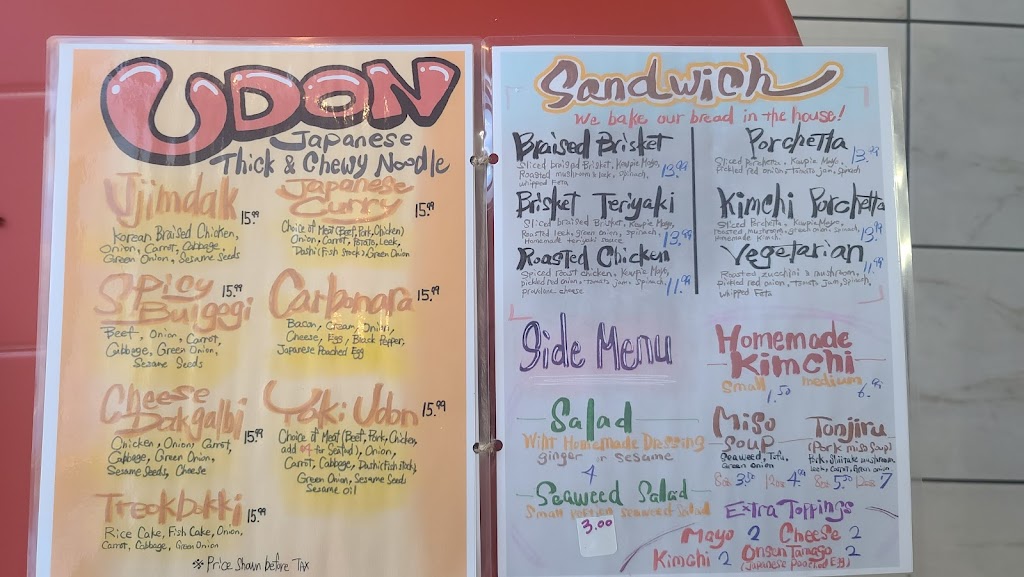 UDON
Japanese
Thick & Chewy Noodle
Jjimdak 15.99
Korean Braised Chicken,
Onion, Carrot, Cabbage
Green Onion, Sesame Seeds
Japanese
Curry 15.99
Choice of Meat (Beef, Pork, Chicken)
Onion, Carrot, Potato, Leek,
Dashi (Fish Stock) Green Onion
Spicy 15.99
Bulgogi
Beef, Onion, Carrot,
Cabbage, Green Onion,
Sesame Seeds
Carbonara 15.99
Bacon, Cream, Onion,
Cheese, Egg, Black Pepper,
Japanese Poached Egg
Cheese
Dakgalbi 15.99
Chicken, Onion, Carrot,
Cabbage, Green Onion,
Sesame Seeds, Cheese
Yaki Udon 15.99
Choice of Meat (Beef, Pork, Chicken,
add $4 for Seafood), Onion,
Carrot, Cabbage, Dashi (Fish Stock),
Green Onion, Sesame Seeds
Sesame oil
Tteokbokki 15.99
Rice Cake, Fish Cake, Onion,
Carrot, Cabbage, Green Onion
※ Price Shown before TAX
Sandwich
We bake our bread in the house!
Braised Brisket
Sliced braised Brisket, Kewpie Mayo,
Roasted mushroom & leek, spinach,
whipped Feta 13.99
Brisket Teriyaki
Sliced braised Brisket, Kewpie Mayo,
Roasted leek, green onion, spinach,
Homemade teriyaki sauce 13.99
Roasted Chicken
Spiced roast chicken, Kewpie Mayo,
pickled red onion, tomato jam, spinach,
provolone cheese 11.99
Porchetta
Sliced Porchetta, Kewpie Mayo, 13.99
pickled red onion, tomato jam, spinach
Kimchi Porchetta
Sliced Porchetta, Kewpie Mayo,
roasted mushroom, green onion, spinach,
homemade kimchi 13.99
Vegetarian 11.99
Roasted zucchini & mushroom,
pickled red onion, tomato jam, spinach,
whipped Feta
Side Menu
Salad
With Homemade Dressing
ginger or sesame
4
Seaweed Salad
Small portion seaweed salad
3.00
Homemade
Kimchi
Small 1.50 medium
Miso
Soup
Seaweed, Tofu,
Green onion
3.50
Tonjiru
(Pork miso soup)
Pork, shiitake mushroom,
leek, carrot, green onion
5.50 7
Extra Toppings
Mayo 2 Cheese 2
Kimchi 2 Onsen Tamago 2
(Japanese Poached Egg)